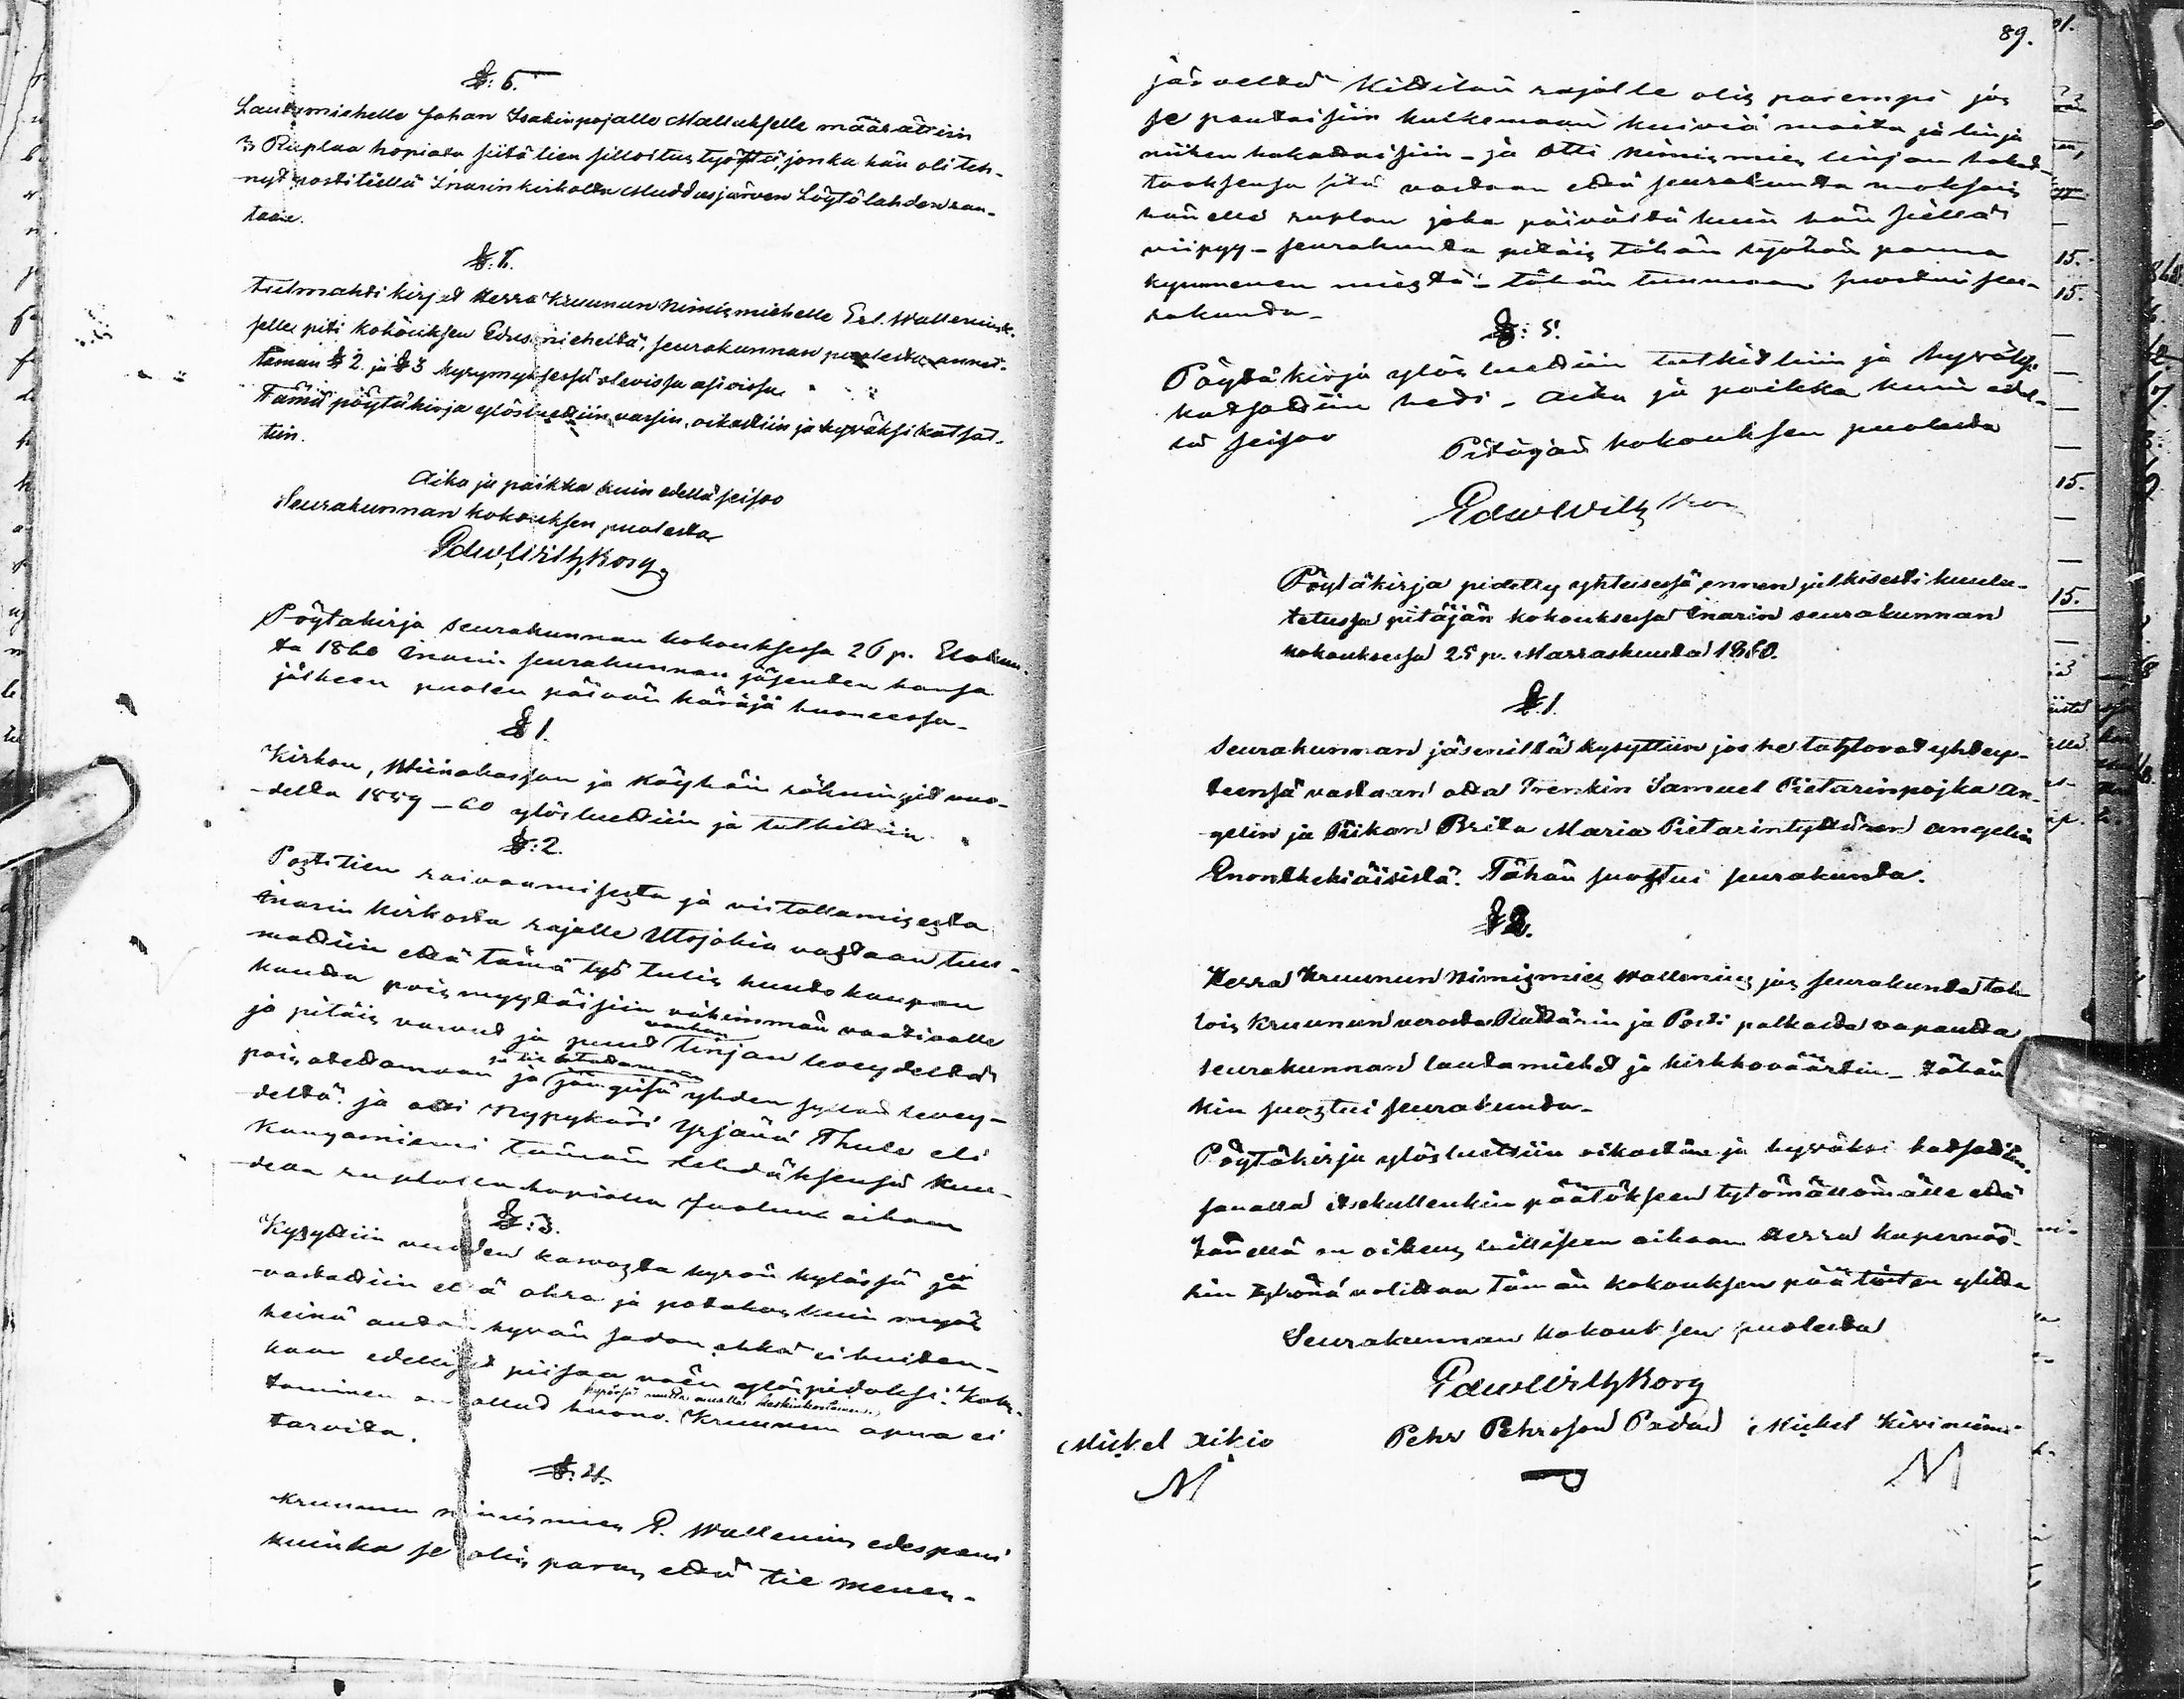 §: 6.
Lautamiehelle Johan Isakinpojalle Mallukselle määrättiin
3 Ruplaa hopiata siitä tien silloitus työstä, jonka hän oli teh-
nyt postitiellä Inarin kirkolta Muddusjärven Löytölahden ran-
taan.
§: 7.
Tulmahti kirjat Herra Kruunun Nimismiehelle Erl. Walleniuk-
selle piti kokouksen Edusmieheltä, seurakunnan puolesta annet-
taman § 2. ja § 3 kysymyksessä olevissa asioissa.
Tämä pöytäkirja ylösluettiin varsin, oikattiin ja hyväksi katsat-
tiin.
Aika ja paikka kuin edellä seisoo
Seurakunnan kokouksen puolesta
Edw. Wilh. Borg.
Pöytakirja seurakunnan kokouksessa 26 p. Elokuu-
ta 1860 Inarin seurakunnan jäsenten kansa
jälkeen puolen päivän käräjä huoneessa-
§ 1.
Kirkon, Wiinakassan ja Köyhäin räkningit vuo-
delta 1859-60 ylösluettiin ja tutkittiin
§: 2.
Postitien raivaamisesta ja viitottamisesta
Inarin kirkosta rajalle Utsjokia vastaan tuu-
mattiin että tämä työ tulis huuto kaupan
kautta pois myytäisiin vähimmän vaativalle
ja pitäis varvut ja puut vanhan linjan leveydeltä
pois otettamaan ja jängisä yhden sylen levey-
deltä ja otti Nypykäri Yrjänä Thule eli
Kangasniemi tämän tehdäksensä kuu-
della ruplalla hopialla Juoluun aikaan
§: 3.
Kysyttiin vuoden kasvosta kyrön kylässä ja
vastattiin että ohra ja potakas kuin myös
heinä antoi hyvän sadon ehkä ei kuiten-
kaan edelliset piisaa väen ylöspidoksi. Kala-
taminen on ollut huono. Kruunun apua ei
tarvita.
§: 4.
Kruunun nimismies P. Wallenius edespani
kuinka se olis paras että tie menen-
89.
järveltä Kittilän rajalle olis parempi jos
se pantaisiin kulkemaan kuivia maita ja linja
niihen hakattaisiin - ja Otti Nimismies linjan hakat-
taaksensa sitä vastaan että seurakunta maksais
hänelle ruplan joka päivältä kuin hän siellä
viipyy - seurakunta pitäis töhän työhön panna
kymmenen miestä - tähän tuumaan suostui seu-
rakunta-
§: 5.
Pöytäkirja ylös luettiin tutkittiin ja hyväksi
katsattiin heti - Aika ja paikka kuin edel-
lä seisoo
Pitäjän kokouksen puolesta
Edw Wilh Borg
Pöytäkirja pidetty yhteisessä ennen julkisesti kuulu-
tetussa pitäjän kokouksessa Inarin seurakunnan
kokouksessa 25 p. Marraskuuta 1860.
§. 1.
Seurakunnan jäseniltä kysyttiin jos he tahtovat yhdey-
teensä vastaan otta Trenkin Samuel Pietarinpojka An-
gelin ja Piikan Brita Maria Pietarintyttären Angelin
Enontekiäisistä. Tähän suostui seurakunta.
§ 2.
Herra Kruunun Nimismies Wallenius jos seurakunta tah-
tois Kruunun verosta Ruttärin ja Posti palkasta vapautta
seurakunnan lautamiehet ja kirkkoväärtin - tähän
kin suostui seurakunta-
Pöytäkirja ylös luettiin oikastiin ja hyväksi katsattiin,
sanalla itsekullenkin päätökseen tytömättömälle että
hänellä on oikeus lailliseen aikaan Herra kupernöö-
rin tykönä valittaa tämän kokouksen päätösten ylitse
Seurakunnan kokouksen puolesta
Edw Wilh Borg
Mickel Aikio
Pehr Pehrsson Padad
Mickel Kiviniemi
M
M